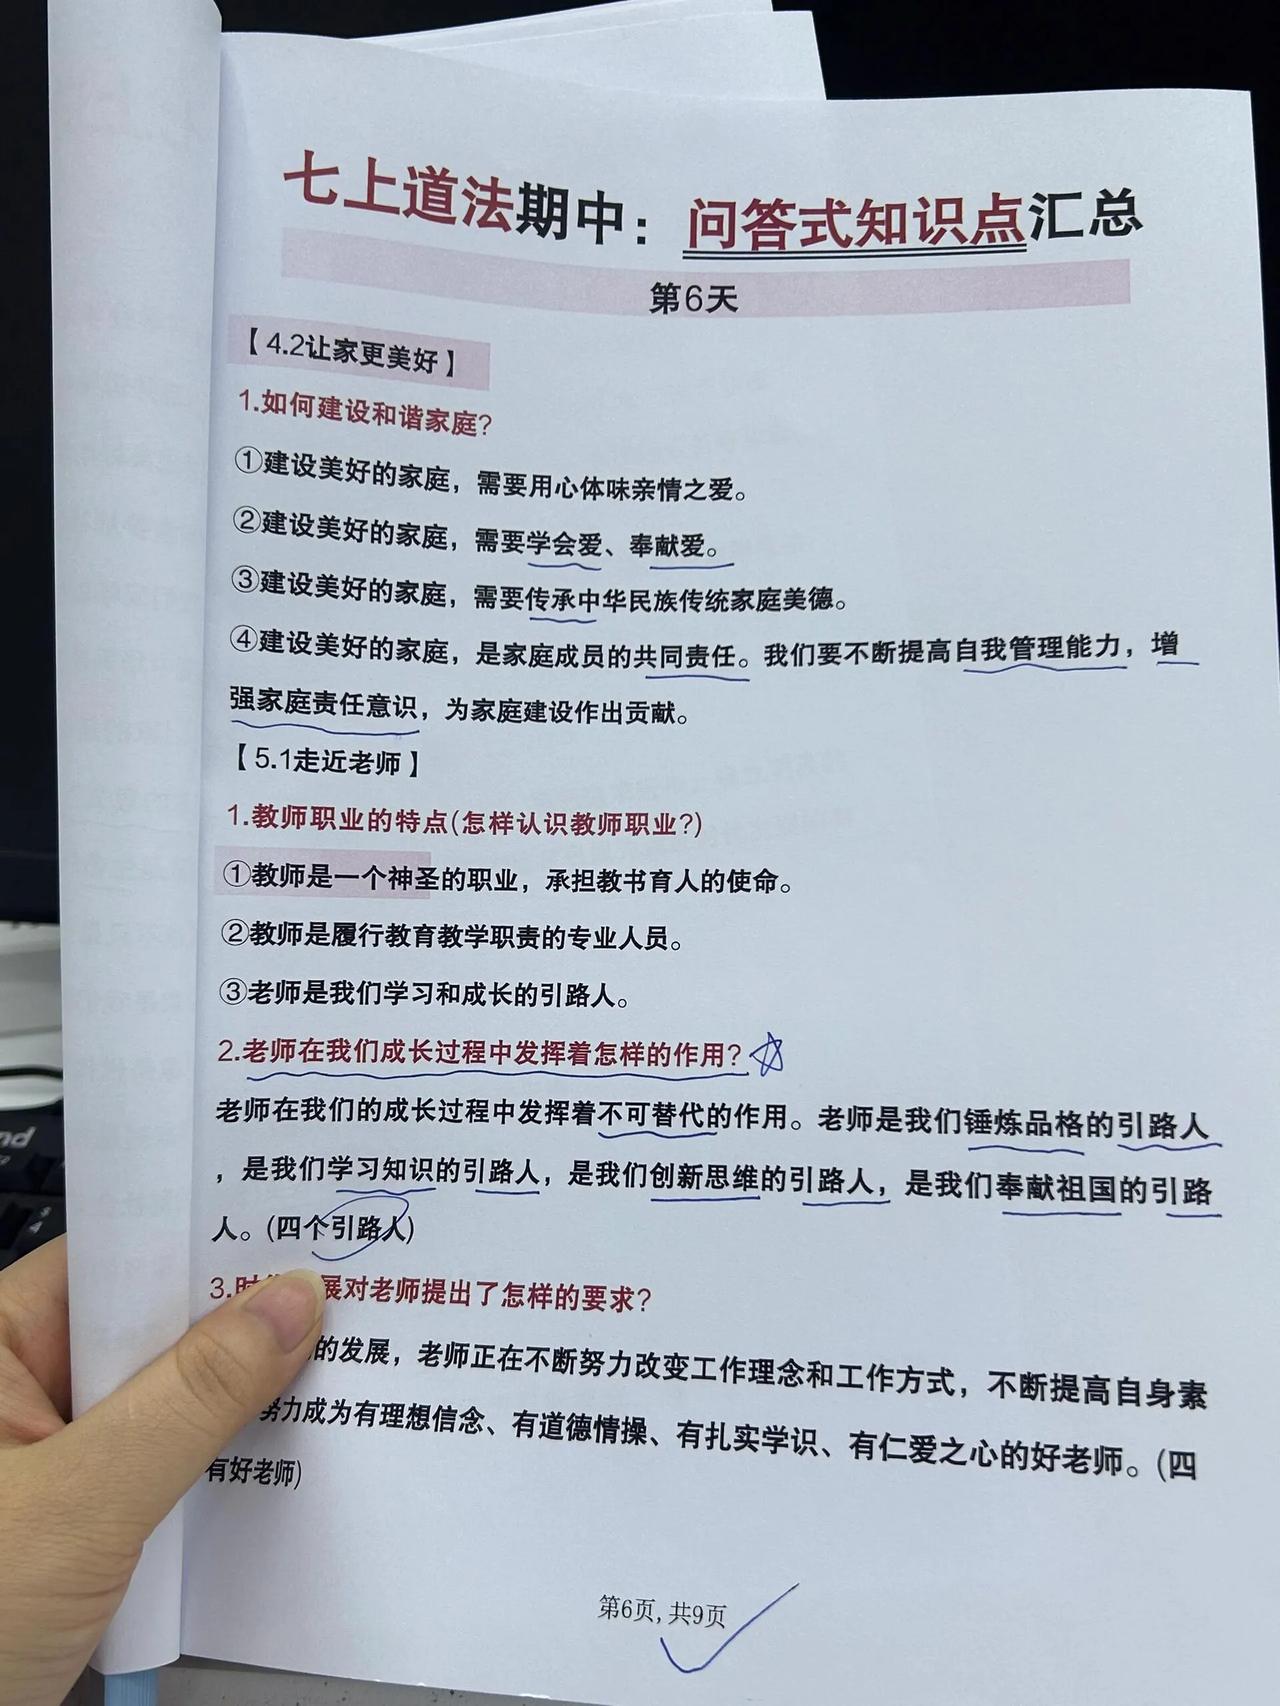 七上道法期中：问答式知识点汇总
第6天
【4.2让家更美好】
1.如何建设和谐家庭?
①建设美好的家庭，需要用心体味亲情之爱。
②建设美好的家庭，需要学会爱、奉献爱。
③建设美好的家庭，需要传承中华民族传统家庭美德。
④建设美好的家庭，是家庭成员的共同责任。我们要不断提高自我管理能力，增
强家庭责任意识，为家庭建设作出贡献。
【5.1走近老师】
1.教师职业的特点(怎样认识教师职业?)
①教师是一个神圣的职业，承担教书育人的使命。
②教师是履行教育教学职责的专业人员。
③老师是我们学习和成长的引路人。
2.老师在我们成长过程中发挥着怎样的作用?
老师在我们的成长过程中发挥着不可替代的作用。老师是我们锤炼品格的引路人
，是我们学习知识的引路人，是我们创新思维的引路人，是我们奉献祖国的引路
人。(四个引路人)
3.时展对老师提出了怎样的要求?
的发展，老师正在不断努力改变工作理念和工作方式，不断提高自身素
努力成为有理想信念、有道德情操、有扎实学识、有仁爱之心的好老师。(四
有好老师)
第6页,共9页
nd